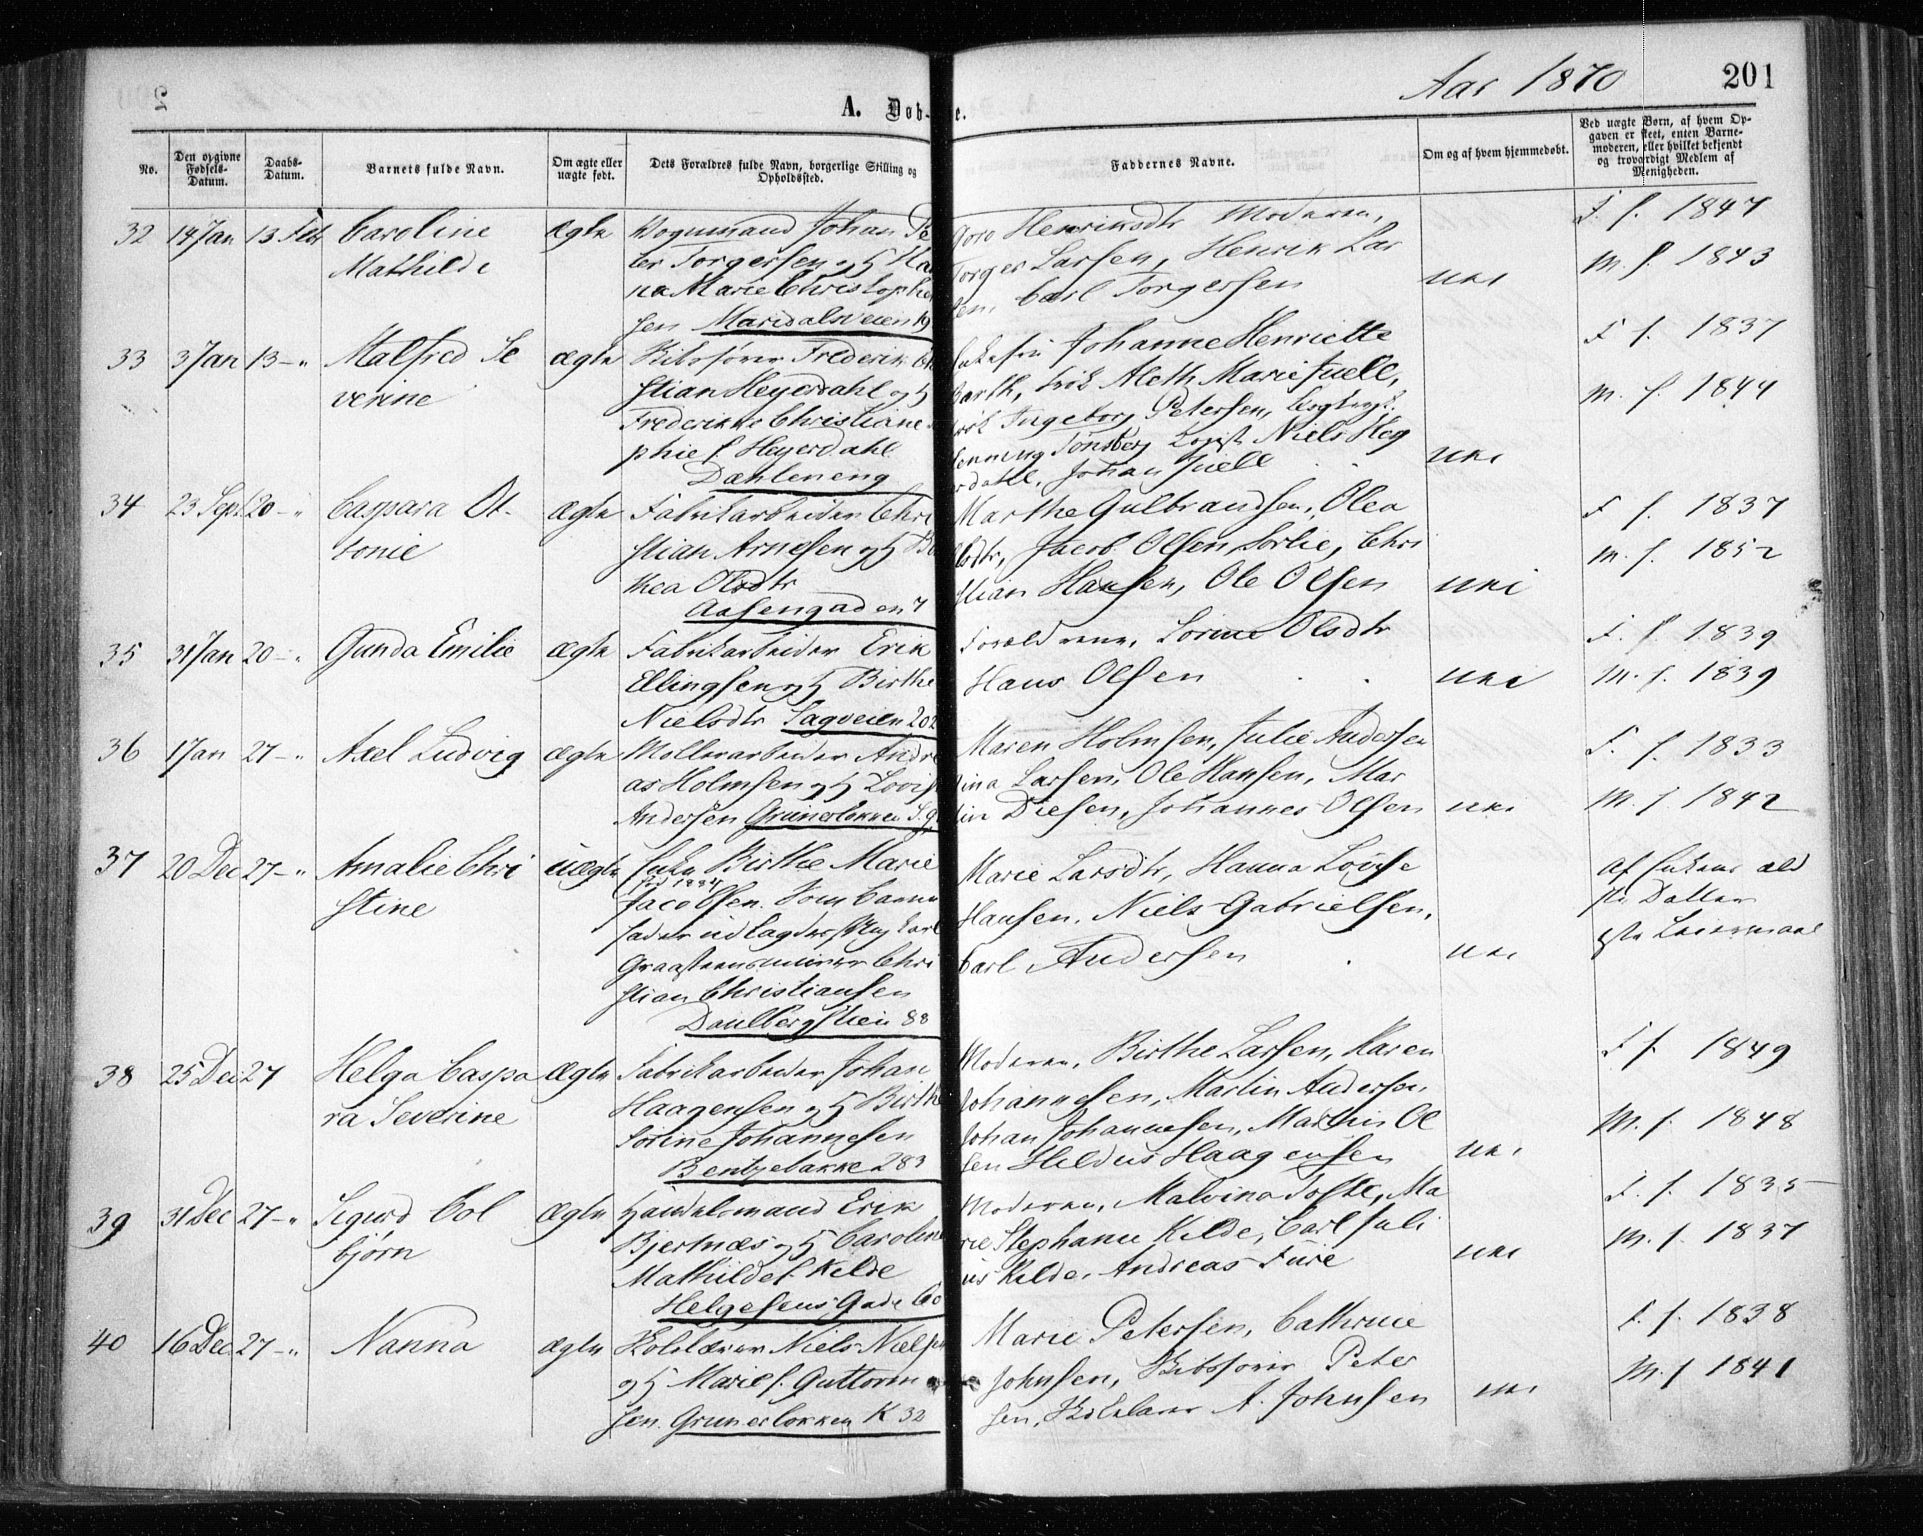 Aar 1870
201
A. Døb-
e.
No.
Den opgivne Fødsels-Datum.
Daabs-Datum.
Barnets fulde Navn.
Om ægte eller uægte født.
Dets Forældres fulde Navn, borgerlige Stilling og Opholdssted.
Faddernes Navne.
Om og af hvem hjemmedøbt.
Ved uægte Børn, af hvem Opgaven er skeet, enten Barnemoderen, eller hvilket bekjendt og troværdigt Medlem af Menigheden.
32 14 Jan 13 Feb Caroline Mathilde ægte
Vognmand Johan
Torgersen og H
na Marie Christophe
sen Maridalsveien 19
Henriksdtr Moderen,
Torger Larsen, Henrik Lar
sen, Carl Torgersen
F. f. 1847
M. f. 1843
33 3 Jan 13 - " Malfred Severine ægte
Frederik
stian Heyerdahl og H
Frederikke Christiane
phie f. Heyerdahl
Dæhleneng
Johanne Henriette
Barth, Frøk Aleth Marie Juell,
Ingeborg Petersen,
Henning Tønsberg Niels Hey
erdahl, Johan Juell
F f. 1837
M. f. 1844
34 23 Sept 20 - " Caspara Ottonie ægte
Fabrikarbeider Chri
stian Arnesen og H
thea Olsdtr
Aasengaden 7
Marthe Gulbrandsen, Olea
Olsdtr, Jacob Olsen Sørlie, Chri
stian Hansen, Ole Olsen
F f. 1837
M. f. 1852
35 31 Jan 20 - " Gunda Emilie ægte
Fabrikarbeider Erik
Ellingsen og H Birthe
Nielsdtr Sagveien 202
Forældrene, Lorine Olsdtr
Hans Olsen
F. f. 1839
M. f. 1839
36 1 Jan 27 - " Axel Ludvig ægte
Møllerarbeider Andre
as Holmsen og H Lovis
Andersen Grünerløkken
Maren Holmsen, Julie Andersen
Larsen, Ole Hansen, Mar
tin Diesen, Johannes Olsen
F. f. 1833
M. f. 1842
37 20 Dec 27 - " Amalie Christine uægte
Enke Birthe Marie
Jacobsen. Som Barne
fader udlagdes Ung karl
Graasteensmurer Chri
stian Christiansen
Dahlbergstien 88
Marie Larsdtr, Hanna Lovise
Hansen, Niels Gabrielsen,
Carl Andersen
Af Enkens æld
ste Datter
38 25 Dec 27 Helga Caspara Severine ægte
Fabrikarbeider Johan
Haagensen og H Birthe
Sørine Johannesen
Bentzebakke 283
Moderen, Birthe Larsen, Karen
Johannesen, Martin Andersen,
Johan Johannesen, Mathis Ol
sen Hildus Haagensen
F f. 1849
M. f. 1848
39 31 Dec 27 - " Sigurd Colbjørn ægte
Handelsmand Erik
Bjertnæs og H Caroline
Mathilde f. Kilde
Helgesens Gade 60
Moderen, Malvina Tofte, Ma
rie Stephanie Kilde, Carl Juli
us Kilde, Andreas Fure
F. f. 1835
M. f. 1837
40 16 Dec. 27 - " Nanna ægte
Skolelærer Niels Nielsen
og H Marie f. Guttorm
sen. Grünerløkken K 32
Marie Petersen, Cathrine
Johnsen, Peter
sen, Skolelærer A. Johnsen
F. f. 1838
M. f 1841